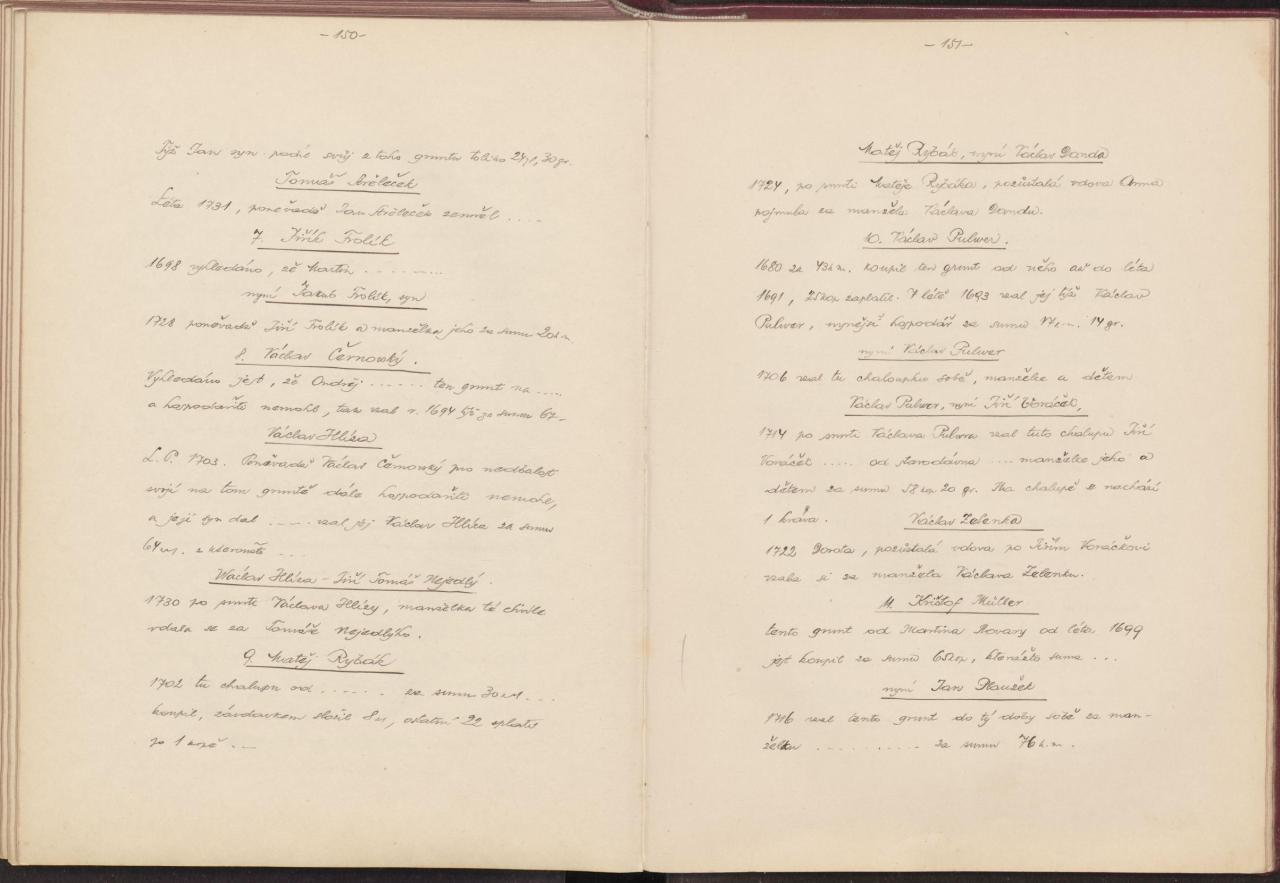 - 150 -
Týž Jan syn podíl svůj z toho gruntu toliko 30 gr.
Tomáš Střeleček
Léta 1731, poněvadž Jan Střeleček zemřel ....
7. Jiřík Frolík
1698 vyhledáno, že Martin ........
nyní Jakub Frolík, syn
1728 poněvadž Jiří Frolík a manželka jeho za sumu
8. Václav Černovský.
Vyhledáno jest, že Ondřej ...... ten grunt na ....
a hospodařiti nemohl, tak vzal r. 1694 týž za sumu 67-
Václav Hlíza
L.P. 1703. Poněvadž Václav Černovský pro nedbalost
svoji na tom gruntě dále hospodařiti nemohl,
a její syn dal ..... vzal jej Václav Hlíza za sumu
64 ...
Václav Hlíza - Jiří Tomáš Nejedlý.
1730 po smrti Václava Hlízy, manželka té chvíle
vdala se za Tomáše Nejedlýho.
9. Matěj Rybák
1702 tu chalupu od ...... za sumu 30 ...
koupil, závdavkem složil 8 ostatní 22 splatit
po 1 kopě ...
- 151 -
Matěj Rybák, nyní Václav Danda
1724, po smrti Matěje Rybáka, pozůstalá vdova Anna
pojmula za manžela Václava Dandu.
10. Václav Pulwer.
1680 za koupil ten grunt od něho až do léta
1691, zaplatil. V létě 1693 vzal jej týž Václav
Pulwer, nynější hospodář za sumu 14 gr.
nyní Václav Pulwer
1706 vzal tu chaloupku sobě, manželce a dětem
Václav Pulwer, nyní Jiří Voráček,
1714 po smrti Václava Pulwra vzal tuto chalupu Jiří
Voráček ..... od starodávna .... manželce jeho a
dětem za sumu 58 kop 20 gr. Na chalupě se nachází
1 kráva. Václav Zelenka
1722 Dorota, pozůstalá vdova po Jiřím Voráčkovi
vzala si za manžela Václava Zelenku.
11. Krištof Müller
tento grunt od Martina Kovary od léta 1699
jest koupil za sumu 65 kop, kterážto suma ...
nyní Jan Ploužek
1716 vzal tento grunt do tý doby sobě za man-
želku .......... za sumu 76 k.m.